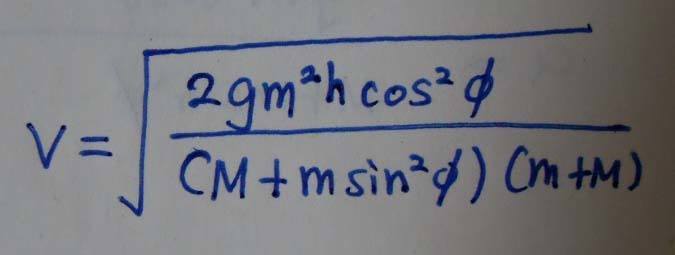 V = √(2gm²h cos²ϕ / (M + m sin²ϕ) (m + M))